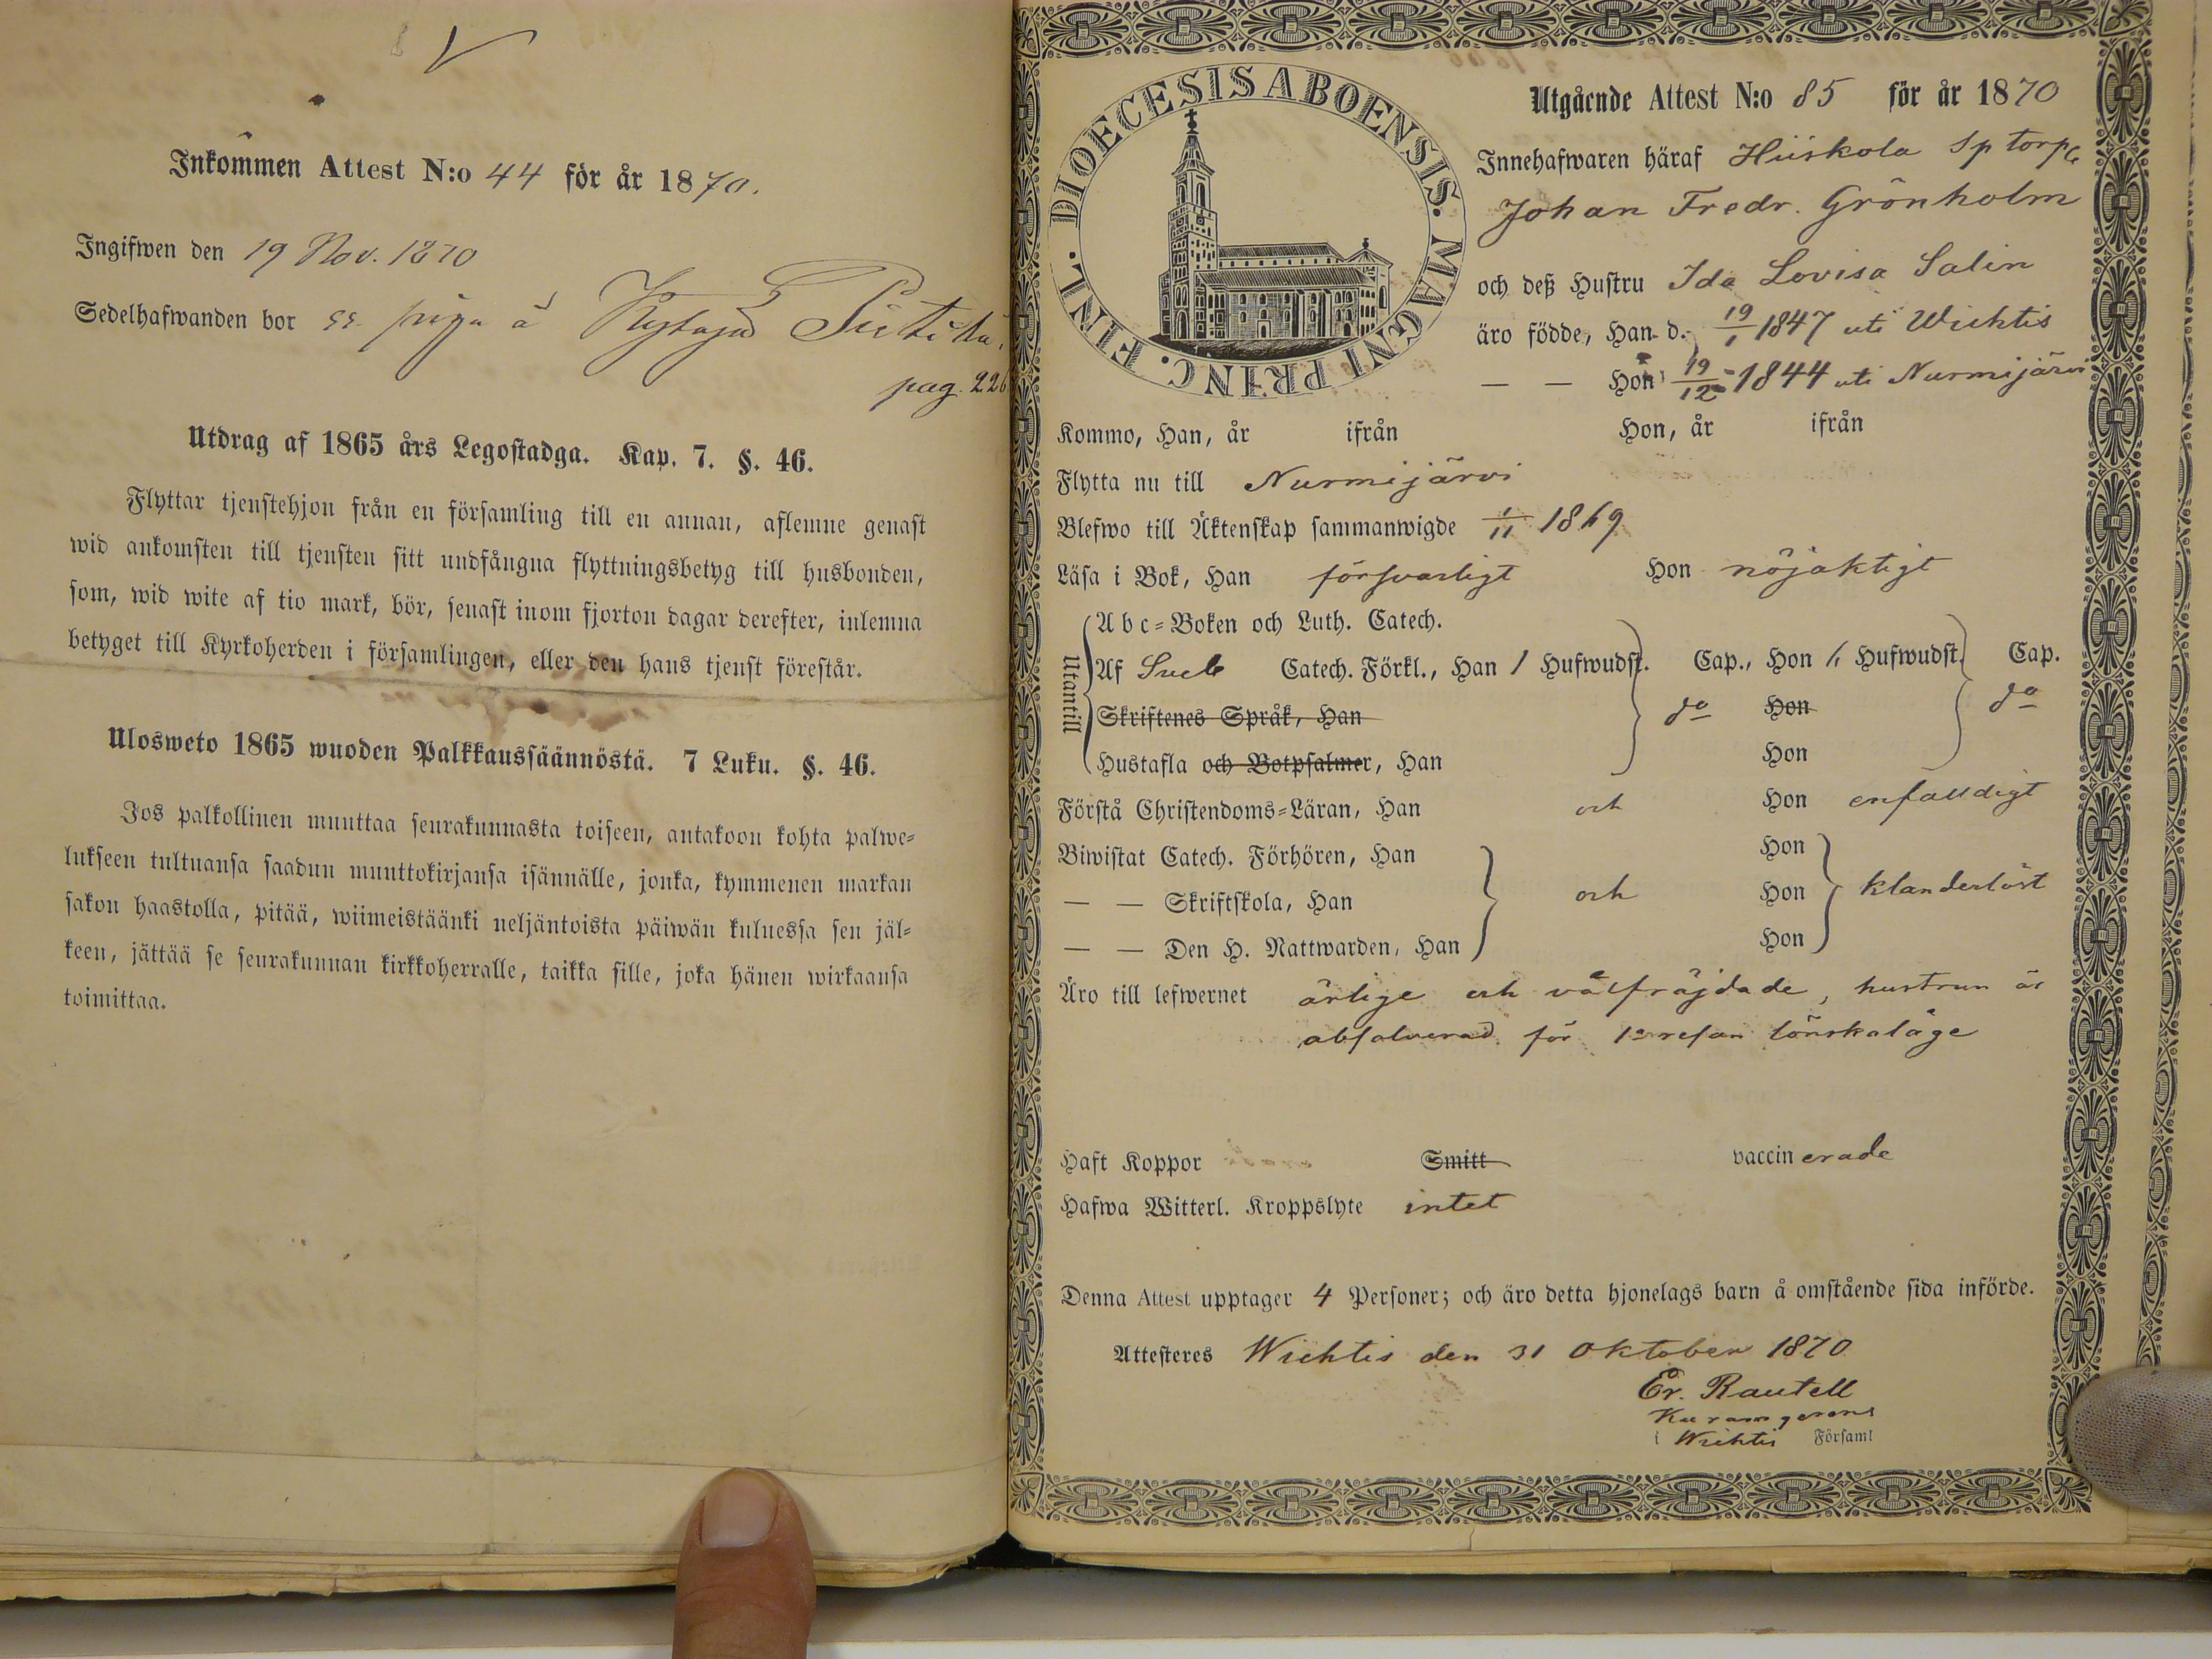 Inkommen Attest N:o 44 för år 1870.
Ingifwen den 19 Nov. 1870
Sedelhafwanden bor ss. piga å
pag. 226
Utdrag af 1865 års Legostadga. Kap. 7. §. 46.
Flyttar tjenstehjon från en församling till en annan, aflemne genast
wid ankomsten till tjensten sitt undfångna flyttningsbetyg till husbonden,
som, wid wite af tio mark, bör, senast inom fjorton dagar derefter, inlemna
betyget till Kyrkoherden i församlingen, eller den hans tjenst förestår.
Ulosweto 1865 wuoden Palkkaussäännöstä. 7 Luku. §. 46.
Jos palkollinen muuttaa seurakunnasta toiseen, antakoon kohta palwe-
lukseen tultuansa saadun muuttokirjansa isännälle, jonka, kymmenen markan
sakon haastolla, pitää, wiimeistäänki neljäntoista päiwän kuluessa sen jäl-
keen, jättää se seurakunnan kirkkoherralle, taikka sille, joka hänen wirkaansa
toimittaa.
DIOECESIS ABOENSIS. MAGNI PRINC. FINL.
Utgående Attest N:o 85 för år 1870
Innehafwaren häraf Hiiskola Sp torp
Johan Fredr. Grönholm
och deß Hustru Ida Lovisa Salin
äro födde, Han d. 19/1 1847 uti Wichtis
— — Hon 19/12 1844 uti Nurmijärvi
Kommo, Han, år ifrån Hon, år ifrån
Flytta nu till Nurmijärvi
Blefwo till Äktenskap sammanwigde 1/11 1869
Läsa i Bok, Han försvarligt Hon nöjaktigt
Utantill
Abc-Boken och Luth. Catech.
Af Sveb Catech. Förkl., Han 1 Hufwudst. Cap., Hon 1 Hufwudst. Cap.
Skriftenes Språk, Han do Hon do
Hustafla och Botpsalmer, Han Hon
Förstå Christendoms-Läran, Han och Hon enfaldigt
Biwistat Catech. Förhören, Han Hon
— — Skriftskola, Han och Hon klanderlöst
— — Den H. Nattwarden, Han Hon
Äro till lefwernet ärlige och välfräjdade, hustrun är
absolverad för 1a resan lönskaläge
Haft Koppor Smitt vaccinerade
Hafwa Witterl. Kroppslyte intet
Denna Attest upptager 4 Personer; och äro detta hjonelags barn å omstående sida införde.
Attesteres Wichtis den 31 Oktober 1870
Er. Rautell
Kuram gerens
i Wichtis Församl